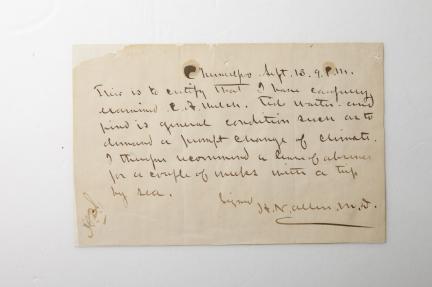 Chemulpo Sept. 13. 9 P.M.
This is to certify that I have carefully
examined C. F. Welch. Tide waiter and
find is general condition such as to
demand a prompt change of climate.
I therefore recommend a leave of absence
for a couple of weeks with a trip
by sea.
Signed
H. N. Allen, M.D.